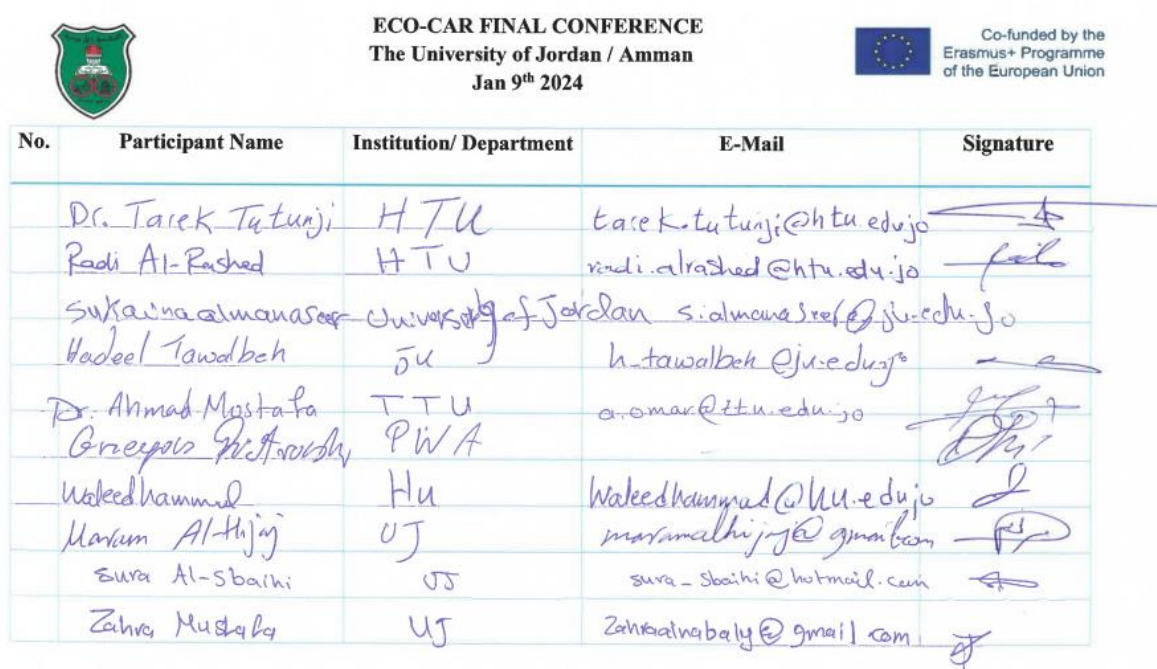 ECO-CAR FINAL CONFERENCE
The University of Jordan / Amman
Jan 9th 2024
Co-funded by the
Erasmus+ Programme
of the European Union
No. Participant Name Institution/ Department E-Mail Signature
Dr. Tarek Tutunji HTU tarek.tutunji@htu.edu.jo
Radi Al-Rashed HTU radi.alrashed@htu.edu.jo
Sukaina almanaseer University of Jordan s.almanaseer@ju.edu.jo
Hadeel Tawalbeh JU h_tawalbeh@ju.edu.jo
Dr. Ahmad Mostafa TTU a.omar@ttu.edu.jo
PWA
Waleed hammad Hu Waleedhammad@hu.edu.jo
Maram Al-Hijaj UJ maramalhijaj@gmail.com
Sura Al-Sbaihi UJ sura_sbaihi@hotmail.com
Zahra Mustafa UJ Zahraalnabaly@gmail.com